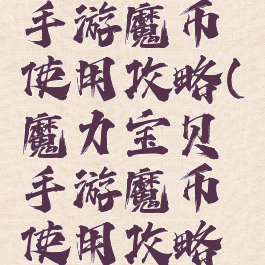 手游魔币
使用攻略(
魔力宝贝
手游魔币
使用攻略